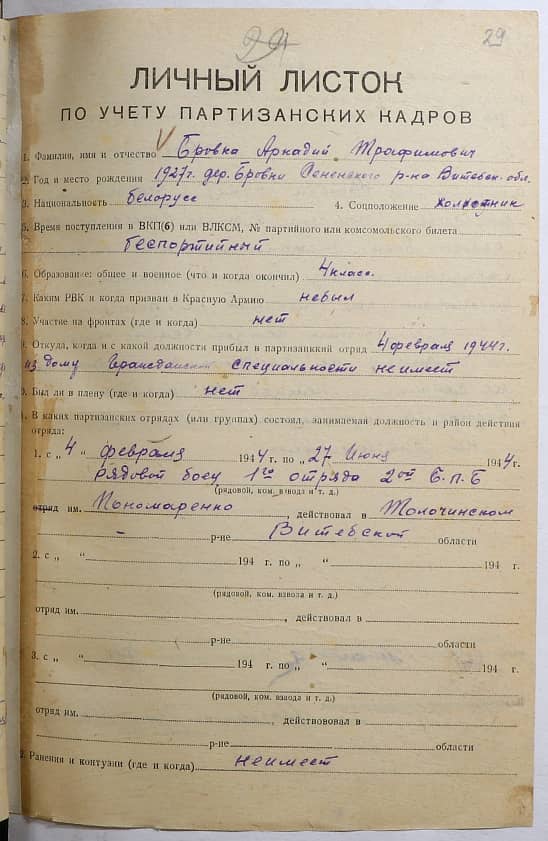 29
ЛИЧНЫЙ ЛИСТОК
ПО УЧЕТУ ПАРТИЗАНСКИХ КАДРОВ
1. Фамилия, имя и отчество Бровка Аркадий Трафимович
2. Год и место рождения 1927г. дер. Бровки Сененского р-на Витебск. обл.
3. Национальность белорусс 4. Соцположение холостник
5. Время поступления в ВКП(б) или ВЛКСМ, № партийного или комсомольского билета
беспортийный
6. Образование: общее и военное (что и когда окончил) 4 класс.
7. Каким РВК и когда призван в Красную Армию небыл
8. Участие на фронтах (где и когда) нет
9. Откуда, когда и с какой должности прибыл в партизанккий отряд 4 февраля 1944г.
из дому гражданской специальности неимеет
0. Был ли в плену (где и когда) нет
1. В каких партизанских отрядах (или группах) состоял, занимаемая должность и район действия
отряда:
1. с „ 4 “ февраля 1944 г. по „ 27 Июня 1944 г.
рядовой боец 1го отряда 2ой Б.П.Б
(рядовой, ком. взвода и т. д.)
отряд им. Пономаренко, действовал в Толочинском
– р-не Витебской области
2. с „ “ 194 г. по „ “ 194 г.
(рядовой, ком. взвода и т. д.)
отряд им. , действовал в
р-не области
3. с „ “ 194 г. по „ “ 194 г.
(рядовой, ком. взвода и т. д.)
отряд им. , действовал в
р-не области
2. Ранения и контузии (где и когда) неимеет